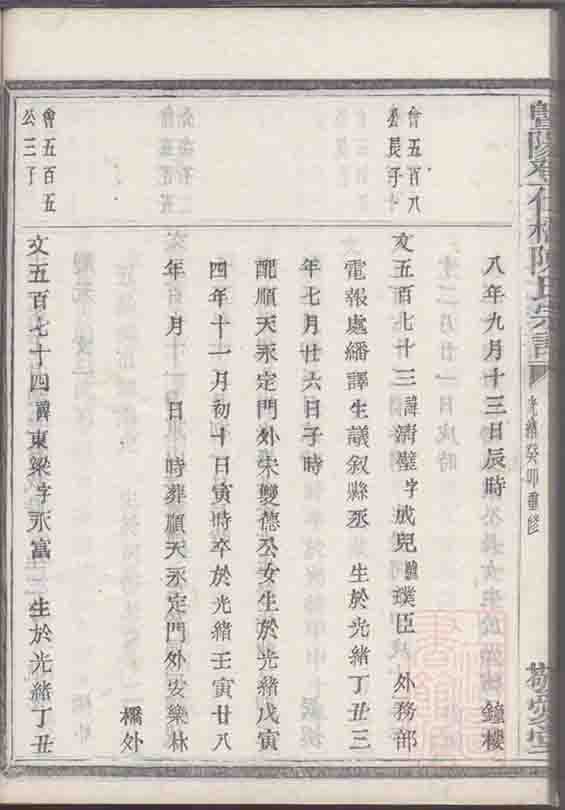 暨陽 仁橋陳氏宗譜 光緒癸卯重修 敬愛堂
八年九月十三日辰時 鐘樓
會五百八
公長子十
文五百七十三諱清璧字成兒號璞臣 外務部
電報處繙譯生議敘縣丞 生於光緒丁丑三
年七月廿六日子時
配順天永定門外宋雙德公女生於光緒戊寅
四年十一月初十日寅時卒於光緒壬寅廿八
年 月 日 時葬順天永定門外安樂林
橋外
會五百五
公三子
文五百七十四諱東梁字永富 生於光緒丁丑